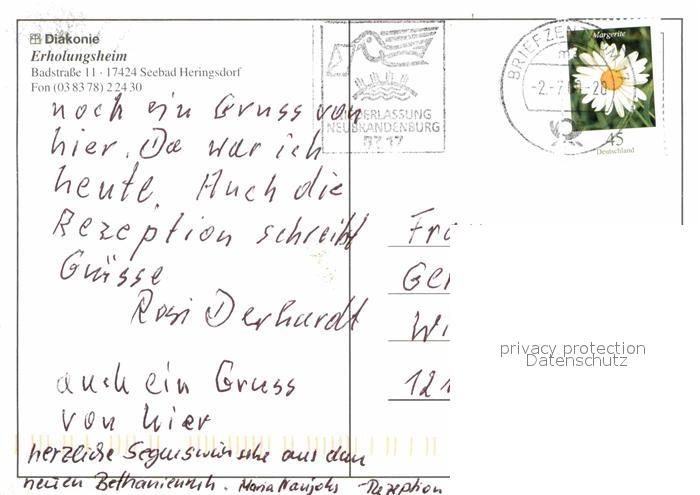 Diakonie
Erholungsheim
Badstraße 11 · 17424 Seebad Heringsdorf
Fon (03 83 78) 2 24 30
noch ein Gruss von
hier. Da war ich
heute. Auch die
Rezeption schreibt
Grüsse
Rosi Derhardt
auch ein Gruss
von hier
herzliche Segenswünsche aus dem
neuen Bethanienruh. Maria - Rezeption
BRIEFZENTRUM 17
-2.-7.
-20
NIEDERLASSUNG
NEUBRANDENBURG
BZ 17
Margerite
45
Deutschland
Fr
Ge
Wi
12
privacy protection
Datenschutz